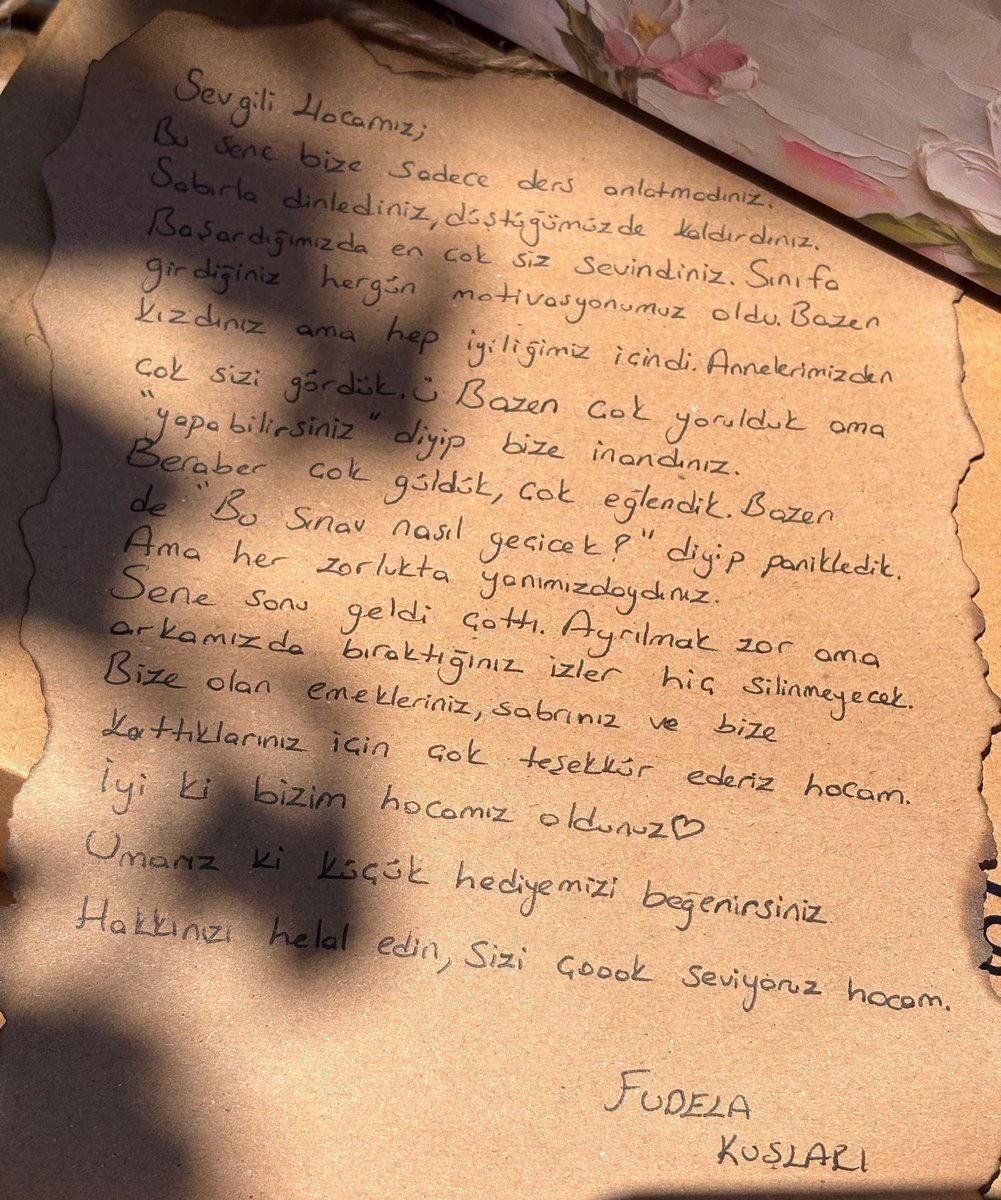 Sevgili Hocamız;
Bu sene bize sadece ders anlatmadınız.
Sabırla dinlediniz, düştüğümüzde kaldırdınız.
Başardığımızda en çok siz sevindiniz. Sınıfa
girdiğiniz hergün motivasyonumuz oldu. Bazen
kızdınız ama hep iyiliğimiz içindi. Annelerimizden
çok sizi gördük. Ü Bazen çok yorulduk ama
"yapabilirsiniz" diyip bize inandınız.
Beraber çok güldük, çok eğlendik. Bazen
de "Bu sınav nasıl geçicek?" diyip panikledik.
Ama her zorlukta yanımızdaydınız.
Sene sonu geldi çattı. Ayrılmak zor ama
arkamızda bıraktığınız izler hiç silinmeyecek.
Bize olan emekleriniz, sabrınız ve bize
kattıklarınız için çok teşekkür ederiz hocam.
İyi ki bizim hocamız oldunuz♡
Umarız ki küçük hediyemizi beğenirsiniz
Hakkınızı helal edin, Sizi Çoook seviyoruz hocam.
FUDELA
KUŞLARI